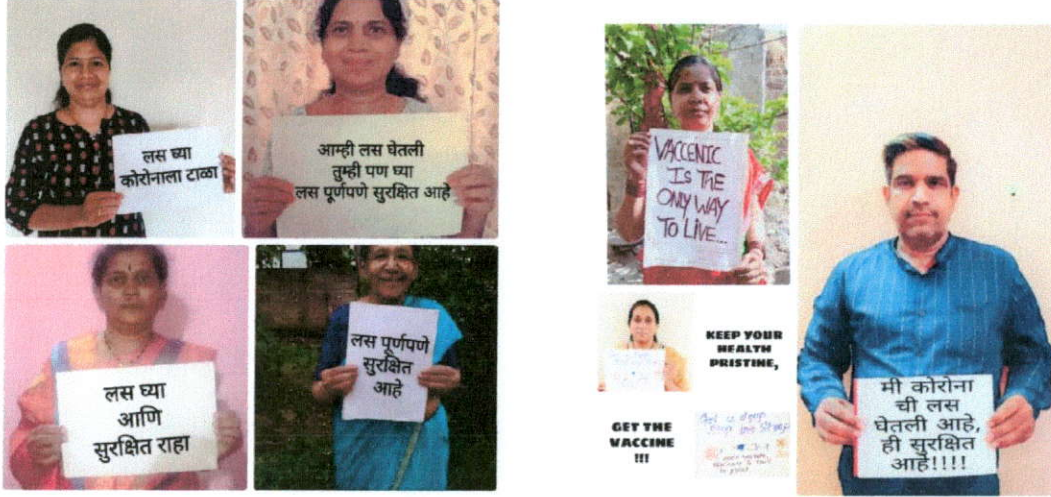 लस घ्या
कोरोनाला टाळा
आम्ही लस घेतली
तुम्ही पण घ्या
लस पूर्णपणे सुरक्षित आहे
लस घ्या
आणि
सुरक्षित राहा
लस पूर्णपणे
सुरक्षित
आहे
VACCENIC
IS THE
ONLY WAY
TO LIVE...
KEEP YOUR
HEALTH
PRISTINE,
GET THE
VACCINE
!!!
मी कोरोना
ची लस
घेतली आहे,
ही सुरक्षित
आहे!!!!